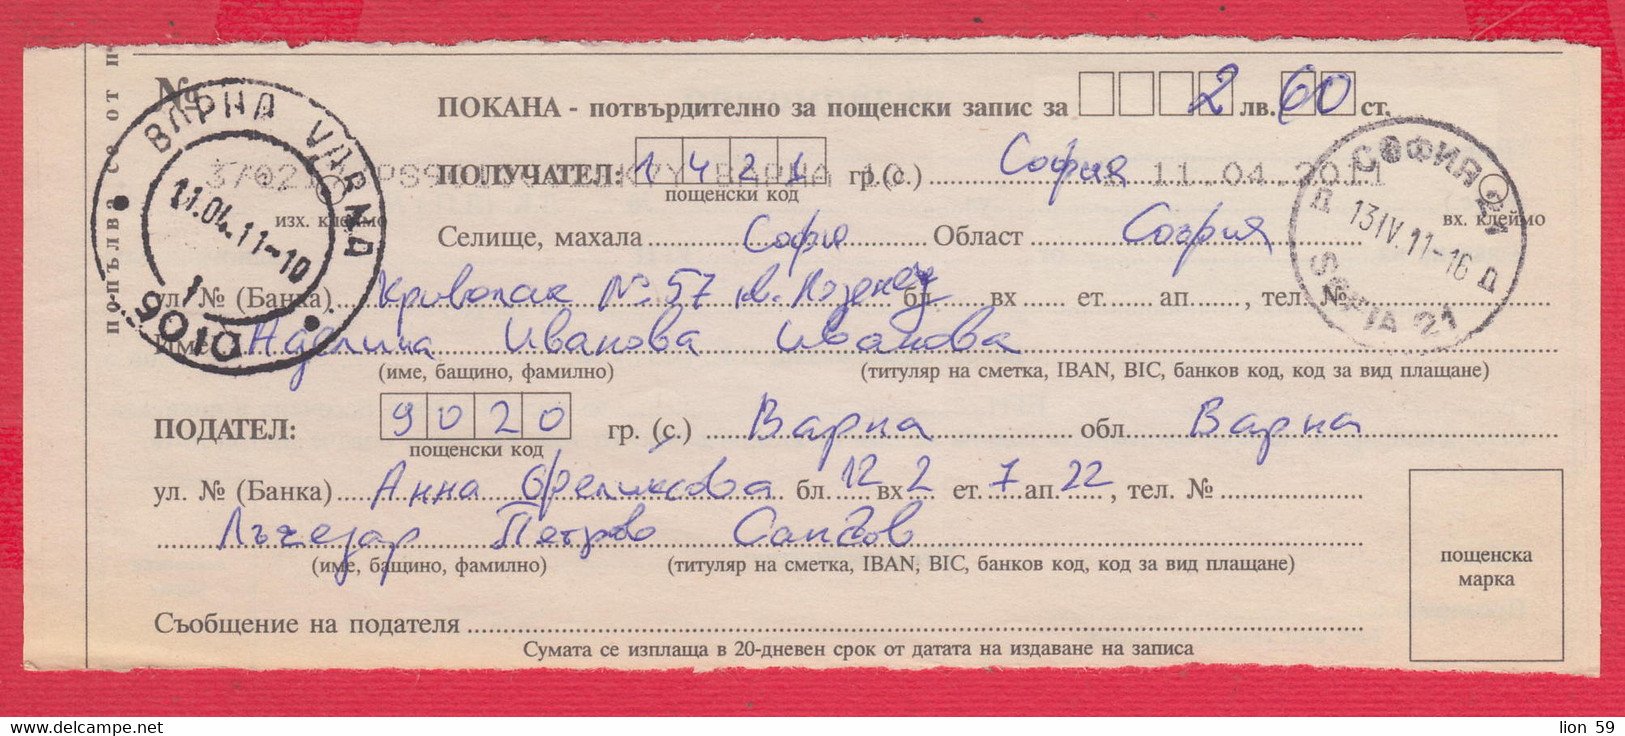 №
ПОКАНА - потвърдително за пощенски запис за 2 лв. 60 ст.
ПОЛУЧАТЕЛ: 1421 гр.(с.) София
11.04.2011
пощенски код
изх. клеймо
вх. клеймо
Селище, махала София Област София
ул. № (Банка) Криволак № 57 кв. Лозенец бл. вх ет. ап. , тел. №
Име Аделина Иванова Иванова
(име, бащино, фамилно) (титуляр на сметка, IBAN, BIC, банков код, код за вид плащане)
ПОДАТЕЛ: 9020 гр. (с.) Варна обл Варна
пощенски код
ул. № (Банка) Анна Феликсова бл. 12 вх 2 ет. 7 ап. 22 , тел. №
Лъчезар Петров
(име, бащино, фамилно) (титуляр на сметка, IBAN, BIC, банков код, код за вид плащане)
пощенска
марка
Съобщение на подателя
Сумата се изплаща в 20-дневен срок от датата на издаване на записа
попълва се от
ВАРНА VARNA
11.04.11-10
1
9010
СОФИЯ 21
Д 13IV.11-16 Д
SOFIA 21
lion 59